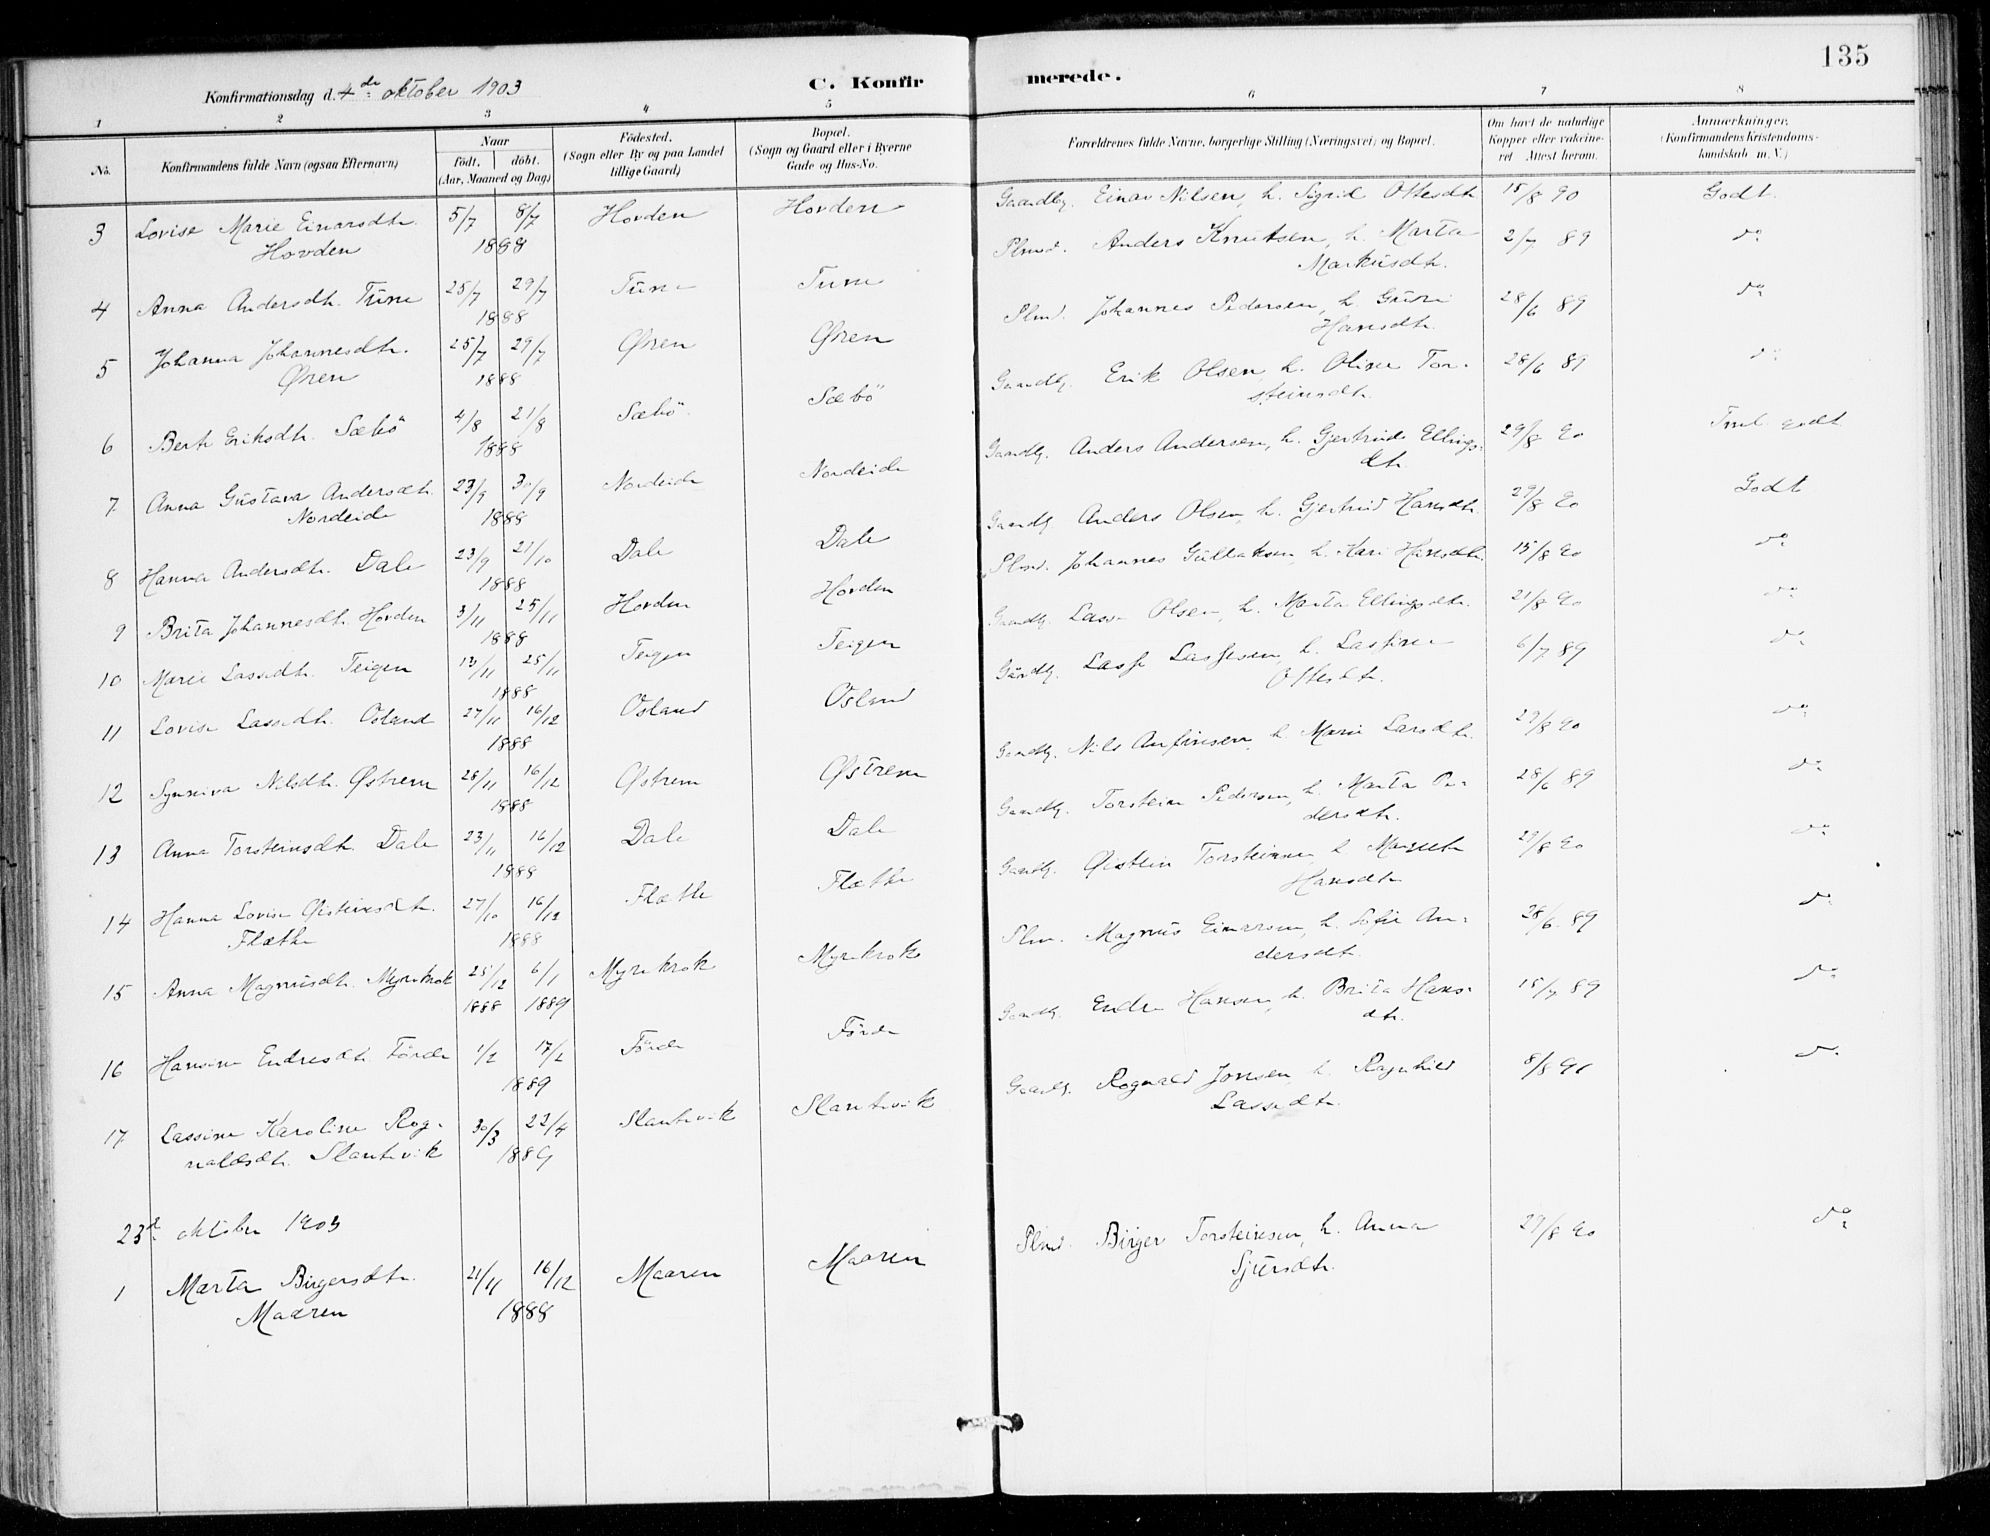 135
Konfirmationsdag d. 4de oktober 1903
C. Konfirmerede.
1 2 3 4 5 6 7 8
No.
Konfirmandens fulde Navn (ogsaa Efternavn)
Naar
födt. döbt.
(Aar, Maaned og Dag)
Födested.
(Sogn eller By og paa Landet
tillige Gaard)
Bopæl.
(Sogn og Gaard eller i Byerne
Gade og Hus-No.
Forældrenes fulde Navne, borgerlige Stilling (Næringsvei) og Bopæl.
Om havt de naturlige
Kopper eller vakcine-
ret Attest herom.
Anmærkninger.
(Konfirmandens Kristendoms-
kundskab m. V.)
3 Lovise Marie Einarsdtr. 5/7 8/7 Hovden Hovden Gaardbg. Einar Nilsen, h. Sigrid Oftesdtr 15/8 90 Godt
Hovden 1888
4 Anna Andersdtr. Tüne 25/7 29/7 Tüne Tüne Plmd. Anders Knutsen, h. Marta 2/7 89 do
1888 Markusdtr.
5 Johanna Johannesdtr. 25/7 29/7 Øren Øren Plmd. Johannes Pedersen, h. Guri 28/6 89 do
Øren 1888 Hansdtr.
6 Berte Eriksdtr. Sæbö 4/8 21/8 Sæbö Sæbö Gaardbg. Erik Olsen h. Oline Tor- 28/6 89 do
1888 steinsdtr.
7 Anna Gustava Andersdtr. 23/9 30/9 Nordeide Nordeide Gaardbg. Anders Andersen, h. Gjertrude Ellings- 29/8 90 godt
Nordeide 1888 dtr.
8 Hanna Andersdtr. Dale 23/9 21/10 Dale Dale Gaardbg. Anders Olsen, h. Gjertrud Hansdtr. 29/8 90 Godt
1888
9 Brita Johannesdtr. Hovden 3/11 25/11 Hovden Hovden Plmd. Johannes Gullaksen, h. Kari Hansdtr. 15/8 90 do
1888
10 Marie Lassedtr. Teigen 13/11 25/11 Teigen Teigen Gaardbg. Lasse Olsen, h. Marta Ellingsdtr. 21/8 90 do
1888
11 Lovise Lassedtr. Osland 27/11 16/12 Osland Osland Gaardbg. Lasse Lassesen, h. Lassine 6/7 89 do
1888 Oftesdtr.
12 Synneva Nilsdtr. Østrem 28/11 16/12 Østrem Østrem Gaardbg. Nils Anfinsen, h. Marie Larsdtr. 29/8 90 do
1888
13 Anna Torsteinsdtr. Dale 23/11 16/12 Dale Dale Gaardbg. Torstein Pedersen, h. Marta Pe- 28/6 89 do
1888 dersdtr.
14 Hanna Lovise Øisteinsdtr. 27/10 16/12 Flæthe Flæthe Gaardbg. Øistein Torsteinsen, h. 29/8 90 do
Flæthe 1888 Hansdtr
15 Anna Magnusdtr. Myrekrok 25/12 6/1 Myrekrok Myrekrok Plm. Magnus Einarsen, h. Sofie An- 28/6 89 do
1888 1889 dersdtr.
16 Hansine Endresdtr. Förde 1/2 17/2 Förde Förde Gaardbg. Endre Hansen, h. Brita Hans- 15/7 89 do
1889 dtr.
17 Lassine Karoline Rog- 30/3 22/4 Slantevik Slantevik Gaardbg. Rognald Jonsen, h. Ragnhild 8/8 do
naldsdtr. Slantevik 1889 Lassedtr.
23d oktober 1903
1 Marta Birgersdtr. 21/11 16/12 Maaren Maaren Plmd. Birger Torsteinsen, h. Anna 29/8 90 do
Maaren 1888 Sjursdtr.